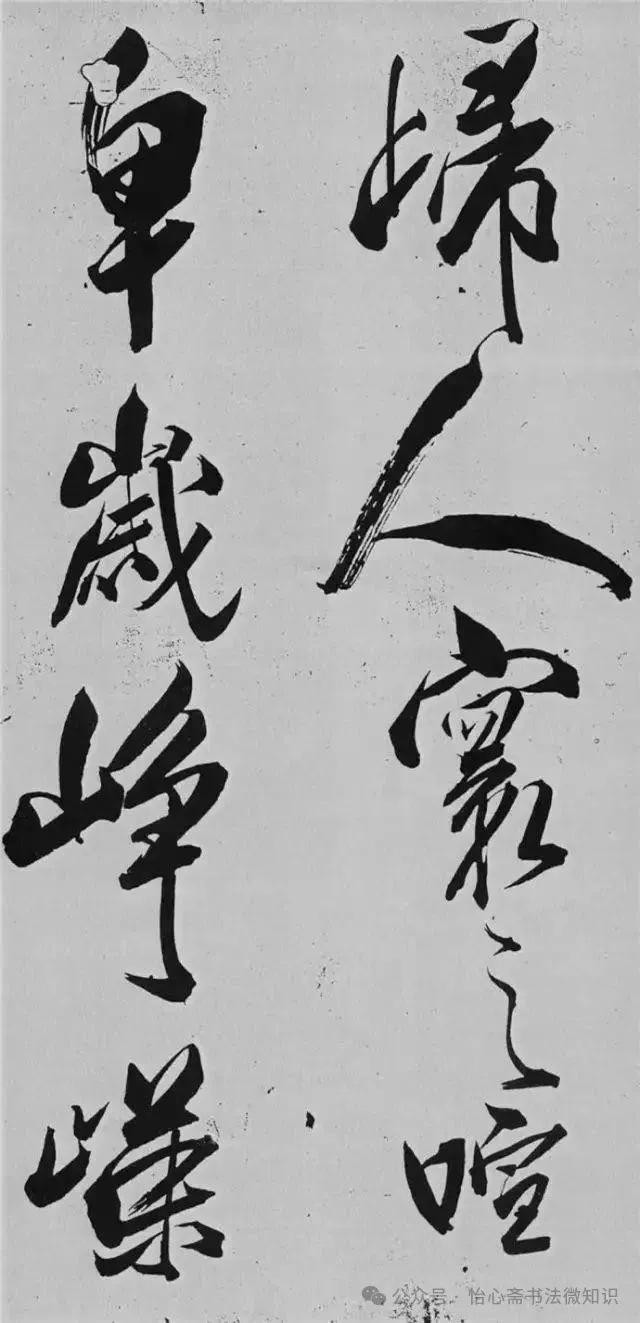 歸人寰之喧
卑歲崢嶸
公众号 · 怡心斋书法微知识